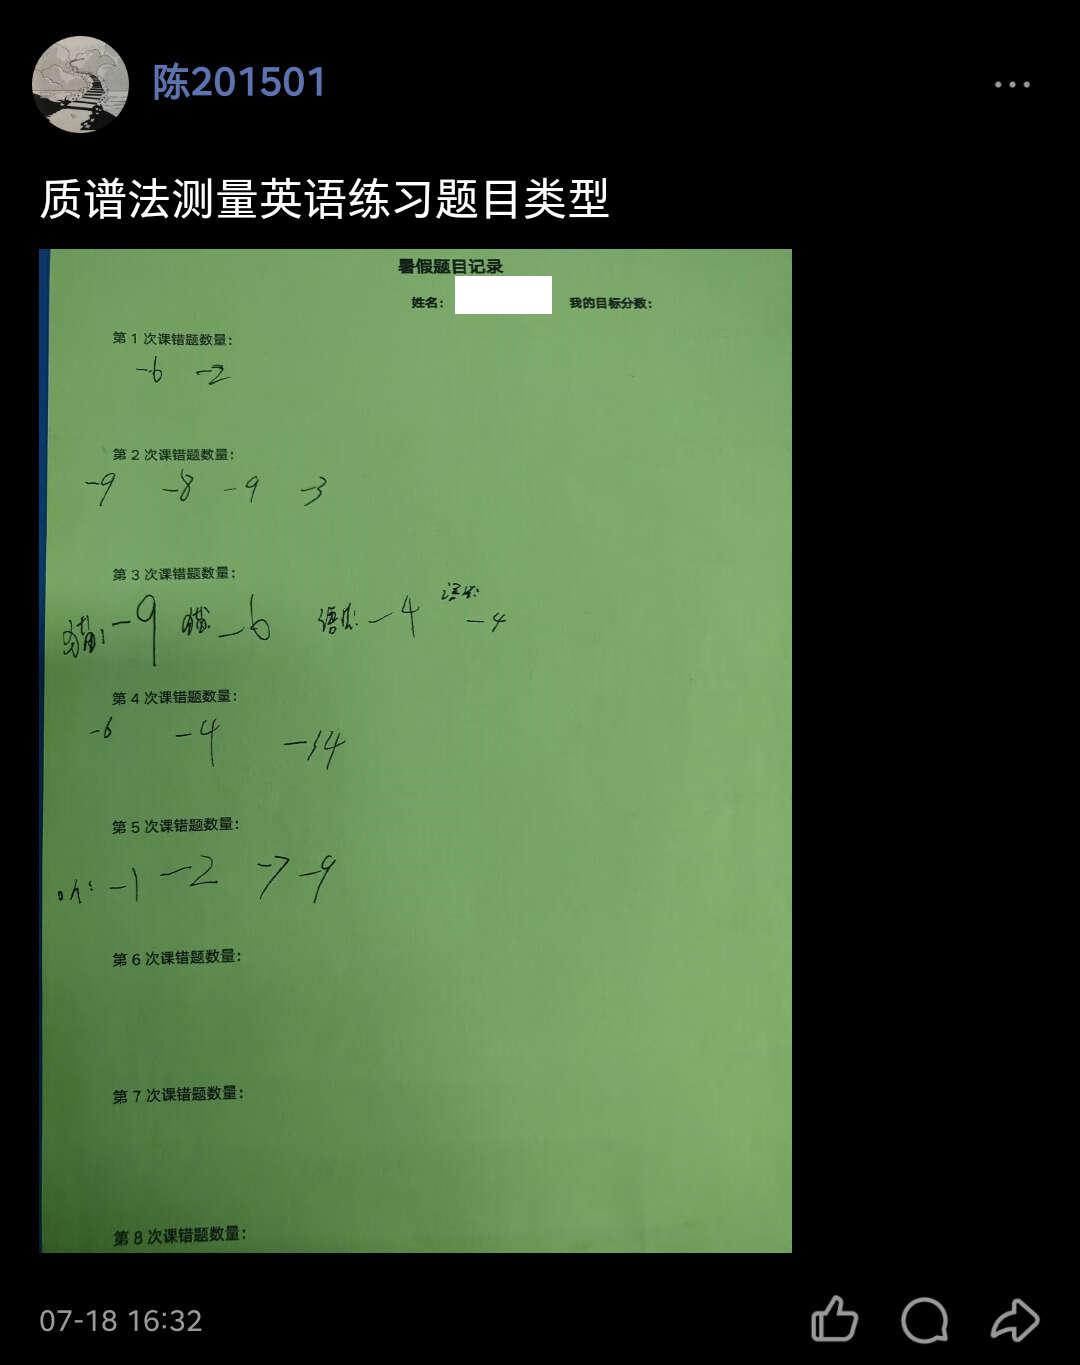 陈201501
质谱法测量英语练习题目类型
暑假题目记录
姓名： 我的目标分数：
第 1 次课错题数量：
-6 -2
第 2 次课错题数量：
-9 -8 -9 -3
第 3 次课错题数量：
-9 -6 语法: -4 语法: -4
第 4 次课错题数量：
-6 -4 -14
第 5 次课错题数量：
-1 -2 -7 -9
第 6 次课错题数量：
第 7 次课错题数量：
第 8 次课错题数量：
07-18 16:32